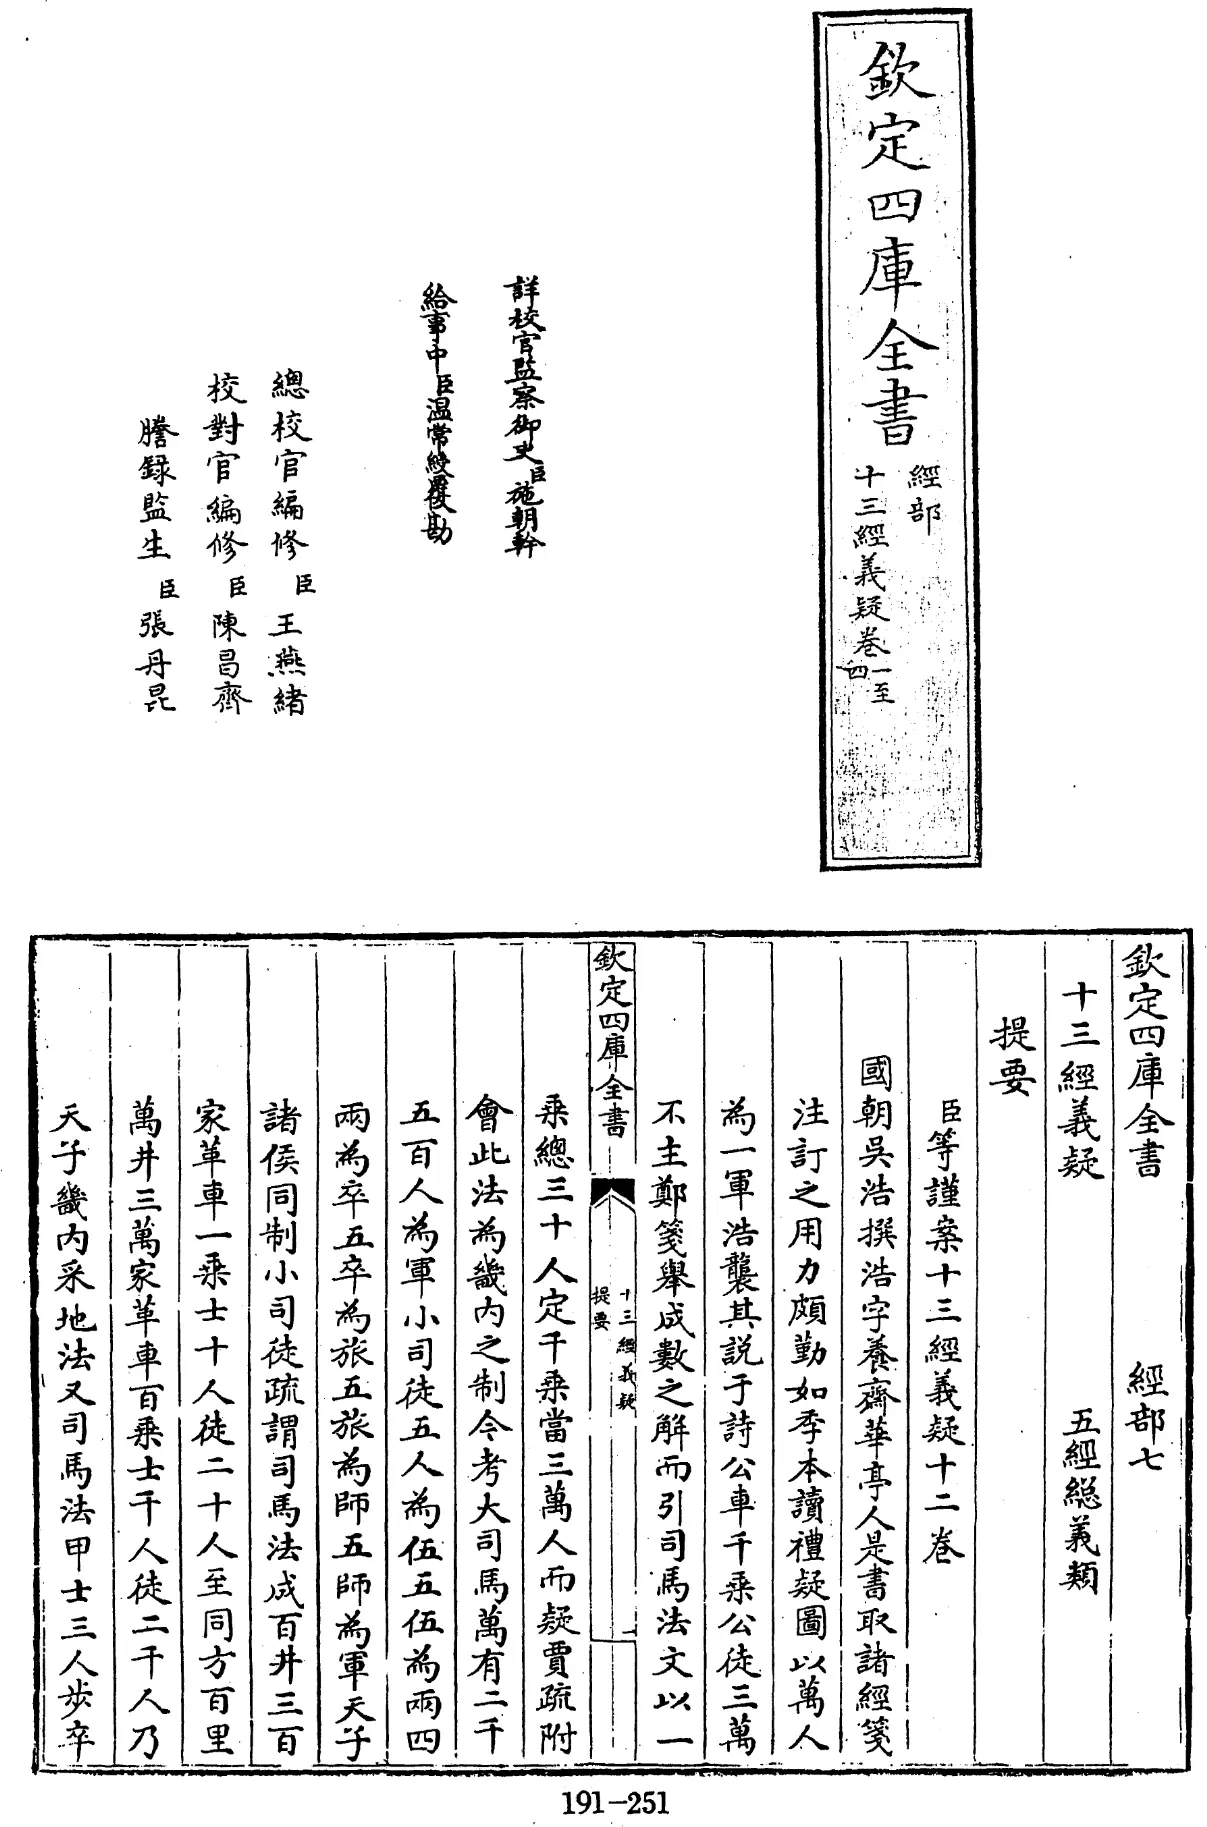 欽定四庫全書
經部
十三經義疑卷一至四
詳校官監察御史臣施朝幹
給事中臣温常綬覆勘
總校官編修臣王燕緒
校對官編修臣陳昌齊
謄錄監生臣張丹昆
欽定四庫全書 經部七
十三經義疑 五經總義類
提要
臣等謹案十三經義疑十二卷
國朝吳浩撰浩字養齋華亭人是書取諸經箋
注訂之用力頗勤如季本讀禮疑圖以萬人
為一軍浩襲其説于詩公車千乘公徒三萬
不主鄭箋舉成數之解而引司馬法文以一
欽定四庫全書
十三經義疑
提要
一
乘總三十人定千乘當三萬人而疑賈疏附
會此法為畿内之制今考大司馬萬有二千
五百人為軍小司徒五人為伍五伍為兩四
兩為卒五卒為旅五旅為師五師為軍天子
諸侯同制小司徒疏謂司馬法成百井三百
家革車一乘士十人徒二十人至同方百里
萬井三萬家革車百乘士千人徒二千人乃
天子畿内采地法又司馬法甲士三人步卒
191-251